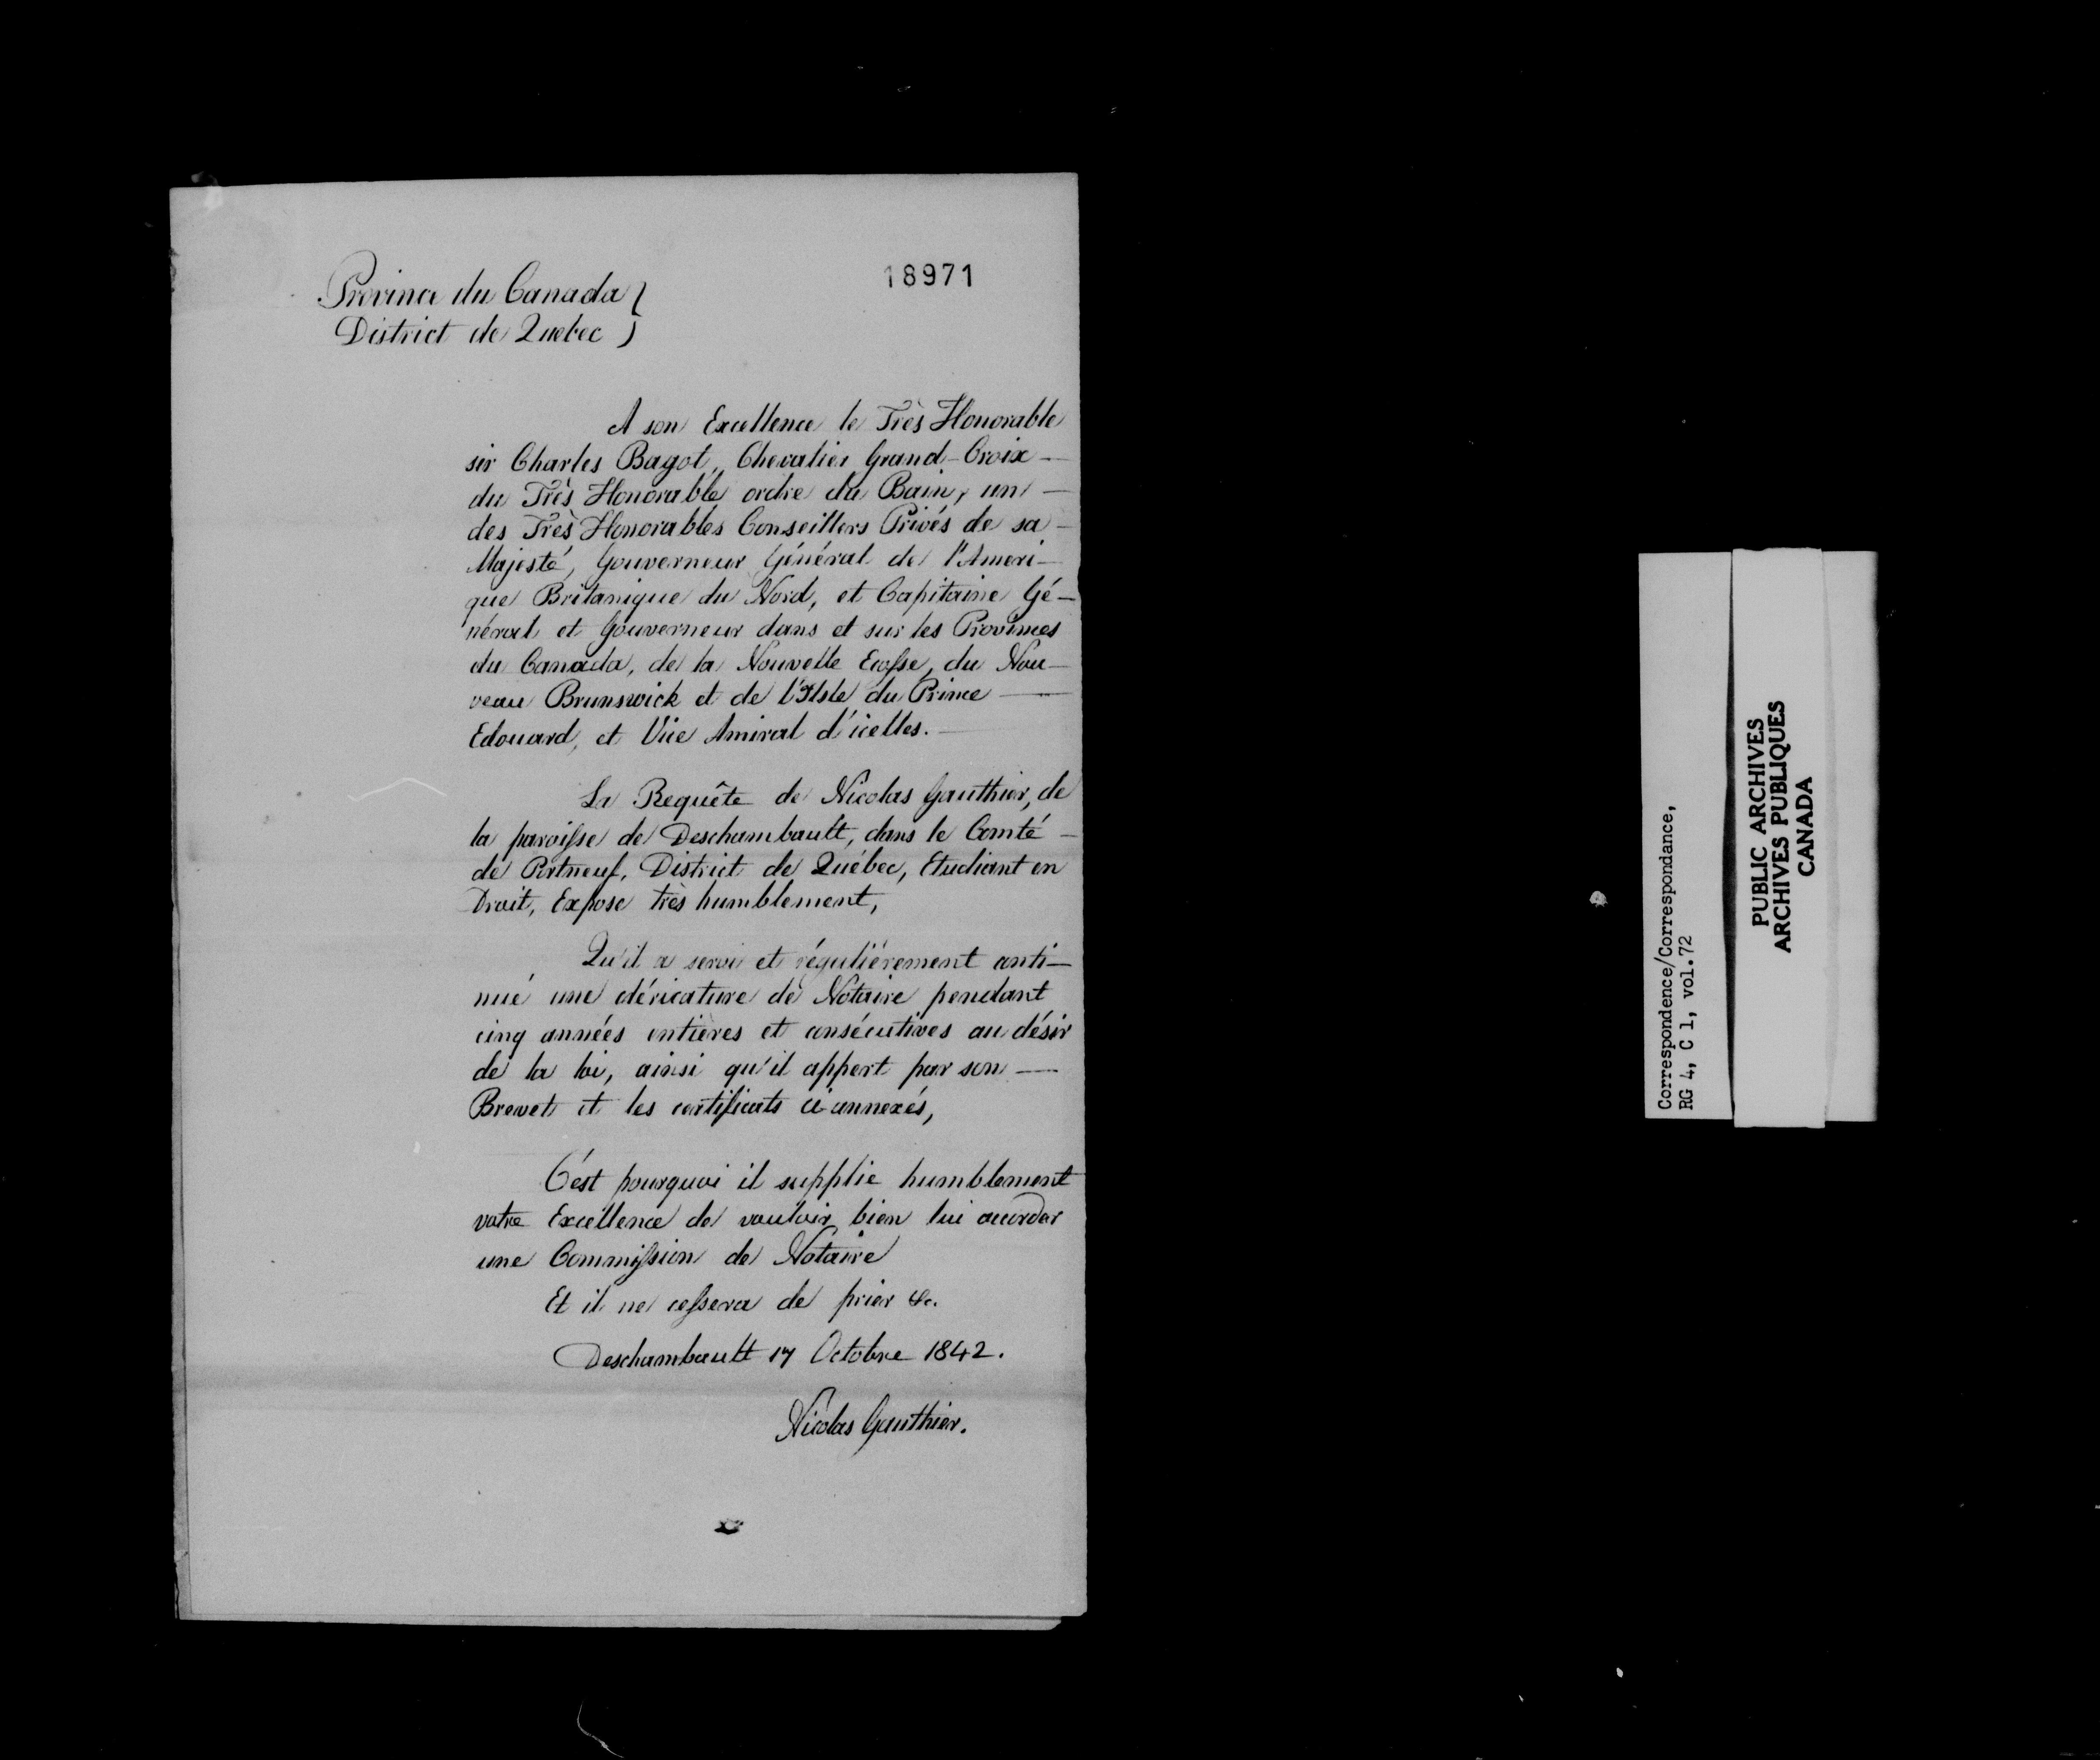 18971
Province du Canada }
District de Quebec }
A son Excellence le Très Honorable
sir Charles Bagot, Chevalier Grand-Croix —
du Très Honorable ordre du Bain, un —
des Très Honorables Conseillers Privés de sa —
Majesté, Gouverneur Général de l'Ameri-
que Britanique du Nord, et Capitaine Gé-
néral et Gouverneur dans et sur les Provinces
du Canada, de la Nouvelle Ecosse, du Nou-
veau Brunswick et de l'Isle du Prince —
Edouard, et Vice Amiral d'icelles. —
La Requête de Nicolas Gauthier, de
la paroisse de Deschambault, dans le Comté —
de Portneuf, District de Québec, Etudiant en
Droit, Expose très humblement,
Qu'il a servi et régulièrement conti-
nué une cléricature de Notaire pendant
cinq années entières et consécutives au désir
de la loi, ainsi qu'il appert par son —
Brevet et les certificats ci-annexés,
C'est pourquoi il supplie humblement
votre Excellence de vouloir bien lui accorder
une Commission de Notaire
Et il ne cessera de prier &c.
Deschambault 17 Octobre 1842.
Nicolas Gauthier.
Correspondence/Correspondance,
RG 4, C 1, vol.72
PUBLIC ARCHIVES
ARCHIVES PUBLIQUES
CANADA